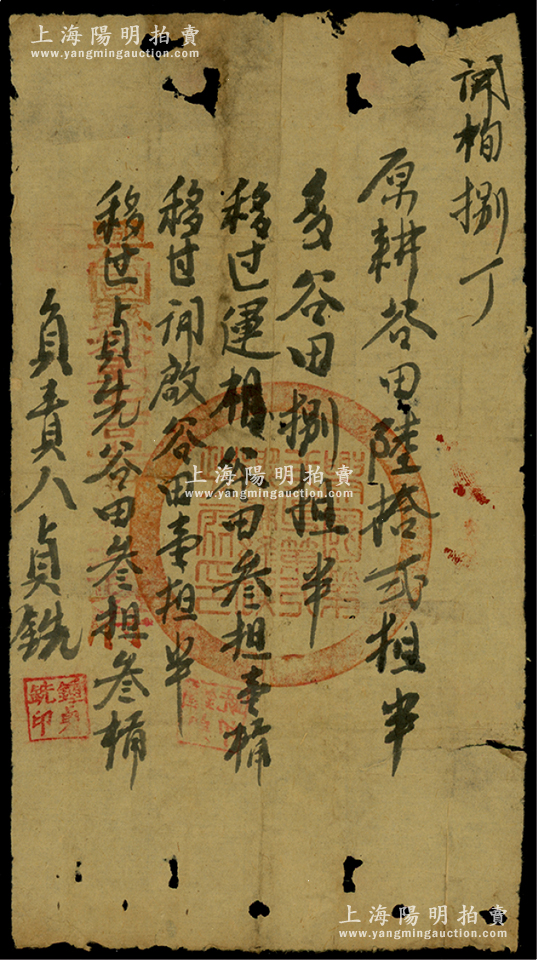 上海陽明拍賣
www.yangmingauction.com
詞柏捌丁
原耕谷田陸拾弍担半
多谷田捌担半
移过運相谷田叁担壹桶
移过詞啟谷田壹担半
移过貞先谷田叁担叁桶
負責人貞銑
鍾貞銑印
上海陽明拍賣
www.yangmingauction.com
上海陽明拍賣
www.yangmingauction.com